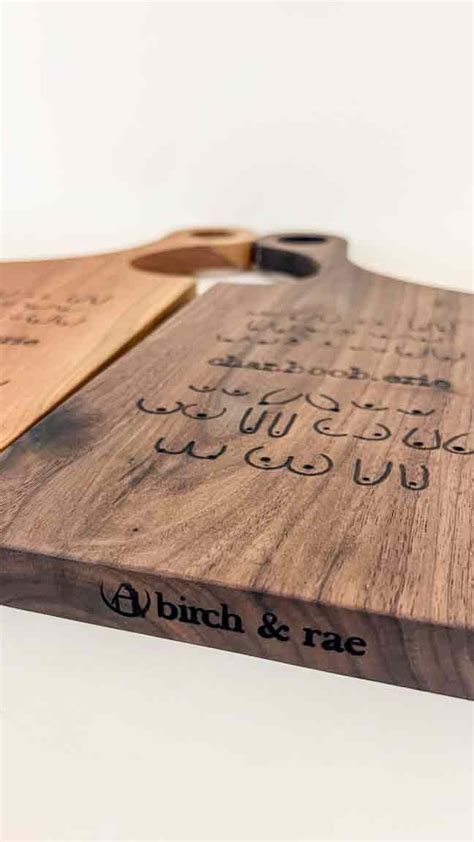 char.boob.erie
birch & rae